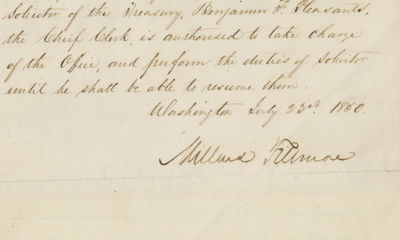 Solicitor of the Treasury, Benjamin F. Pleasants,
the Chief Clerk, is authorised to take charge
of the Office, and perform the duties of Solicitor
until he shall be able to resume them.
Washington July 23rd 1850.
Millard Fillmore